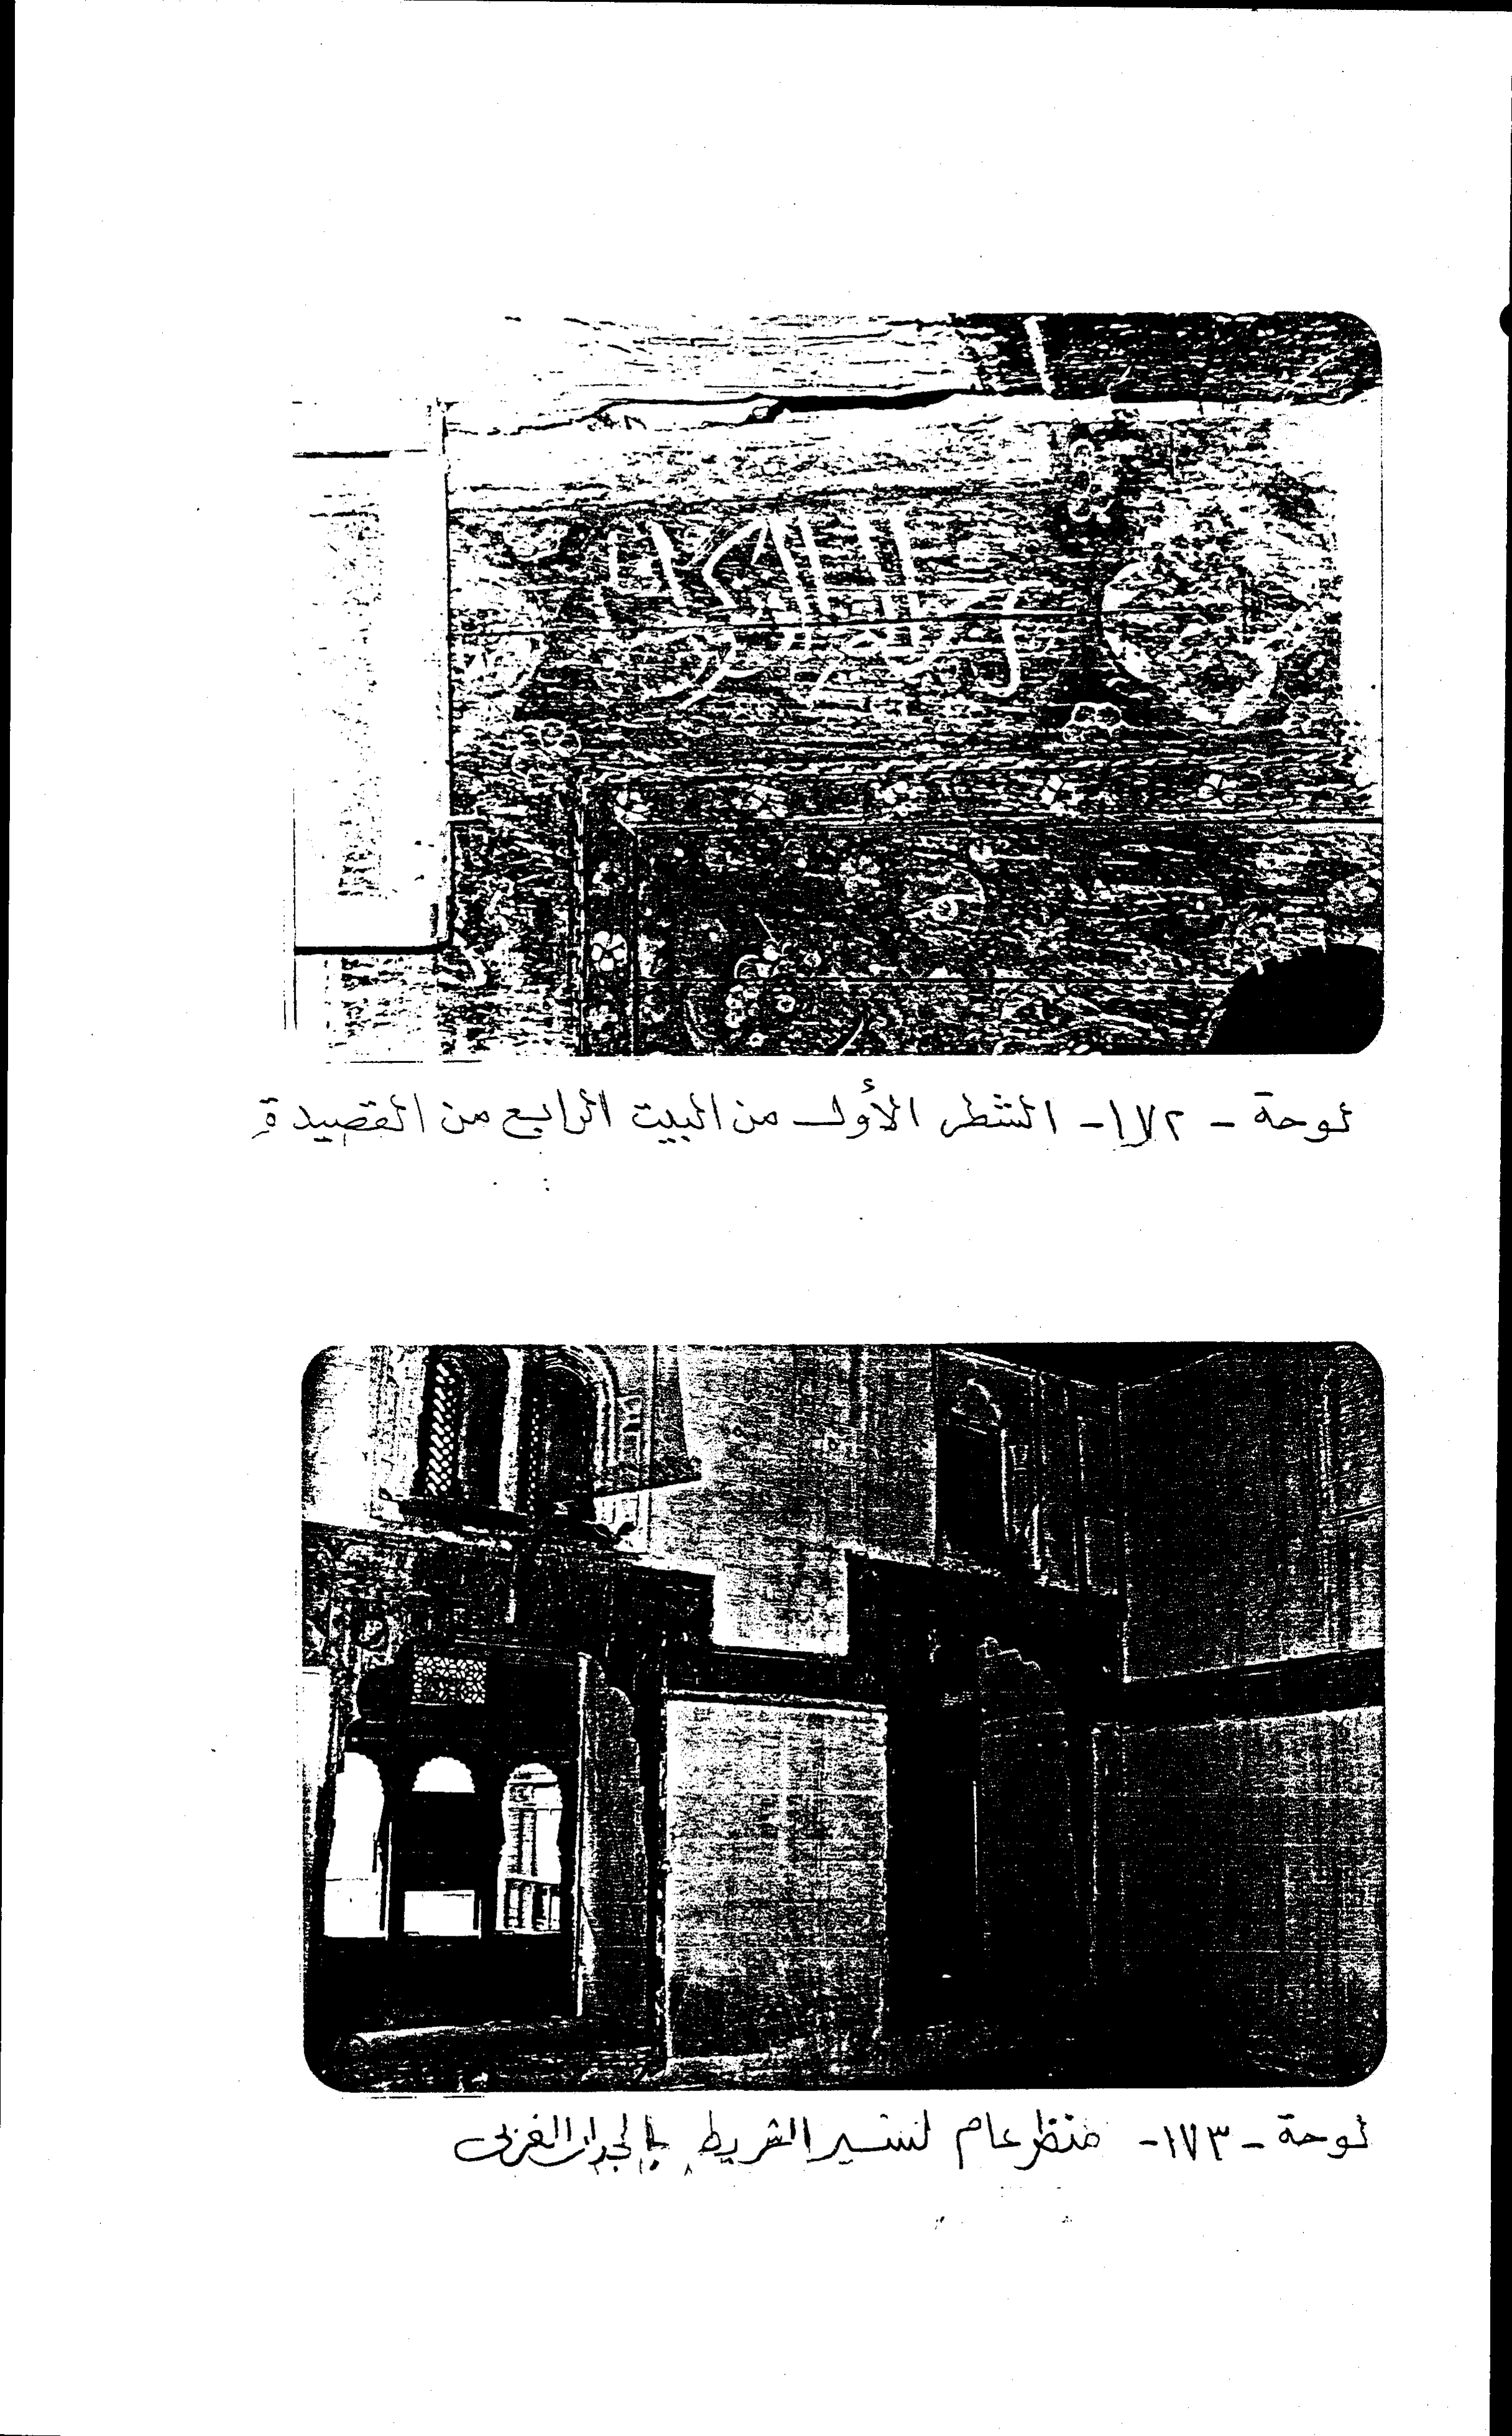 لوحة - ١٧٢ - الشطر الأول من البيت الرابع من القصيدة
لوحة - ١٧٣ - منظر عام لسير الشريط بالجدار الغربى